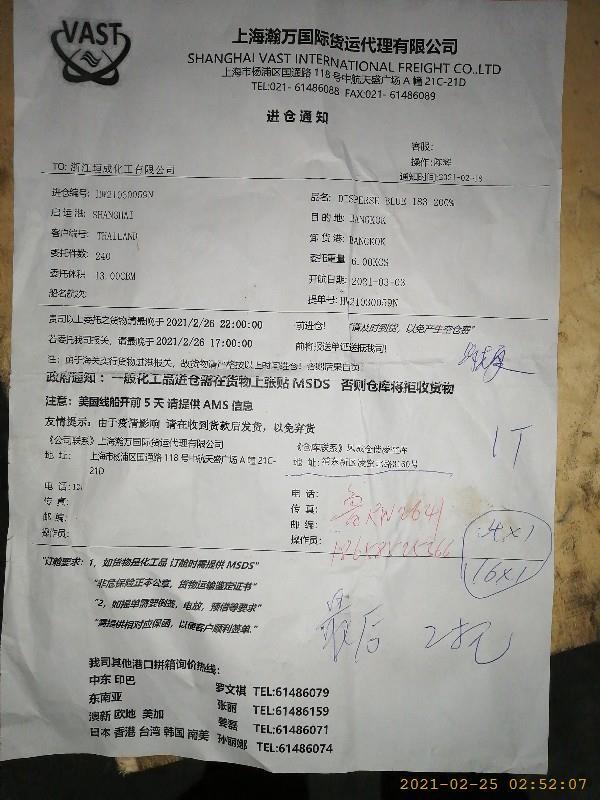 VAST
上海瀚万国际货运代理有限公司
SHANGHAI VAST INTERNATIONAL FREIGHT CO.,LTD
上海市杨浦区国通路 118 号中航天盛广场 A 幢 21C-21D
TEL:021- 61486088 FAX:021- 61486089
进 仓 通 知
客服:
操作:
TO: 浙江恒成化工有限公司
通知时间:2021-02-18
进仓编号: HW21030059N
品名: DISPERSE BLUE 183 200%
启 运 港: SHANGHAI
目 的 地: BANGKOK
客户编号: THAILAND
卸 货 港: BANGKOK
委托件数: 240
委托重量: 6.00KGS
委托体积: 13.00CBM
开航日期: 2021-03-03
船名航次:
提单号: HW21030059N
贵司以上委托之货物请最晚于 2021/2/26 22:00:00 前进仓! "请及时到货, 以免产生空仓费"
若委托我司报关, 请最晚于 2021/2/26 17:00:00 前将报送单证送抵我司!
政府通知: 一般化工品进仓需在货物上张贴 MSDS 否则仓库将拒收货物
注意: 美国线船开前 5 天 请提供 AMS 信息
友情提示: 由于疫情影响 请在收到货款后发货, 以免弃货
《公司联系》上海瀚万国际货运代理有限公司
《仓库联系》
地 址: 上海市杨浦区国通路 118 号中航天盛广场 A 幢 21C-21D
地 址:
1T
电 话:
电 话:
传 真:
传 真:
邮 编:
邮 编:
操作员:
操作员:
16×1
"订舱要求: 1, 如货物是化工品 订舱时需提供 MSDS"
"非危保险正本公章, 货物运输鉴定证书"
"2, 如提单需要倒签, 电放, 预借等要求"
"需提供相对应保函, 以便客户顺利签单."
最后
我司其他港口拼箱询价热线:
中东 印巴 罗文祺 TEL:61486079
东南亚 张丽 TEL:61486159
澳新 欧地 美加 姜磊 TEL:61486071
日本 香港 台湾 韩国 南美 孙丽娜 TEL:61486074
2021-02-25 02:52:07